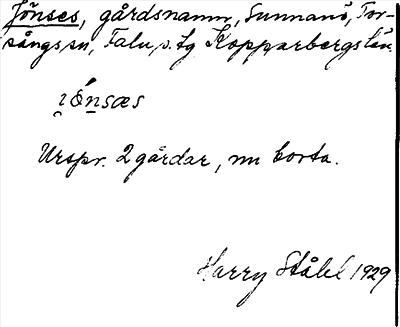 Jönses, gårdsnamn, Sunnanö, Tor-
sångs sn, Falu s. tg Kopparbergs län.
jö́nsæs
Urspr. 2 gårdar, nu borta.
Harry Ståhl 1929